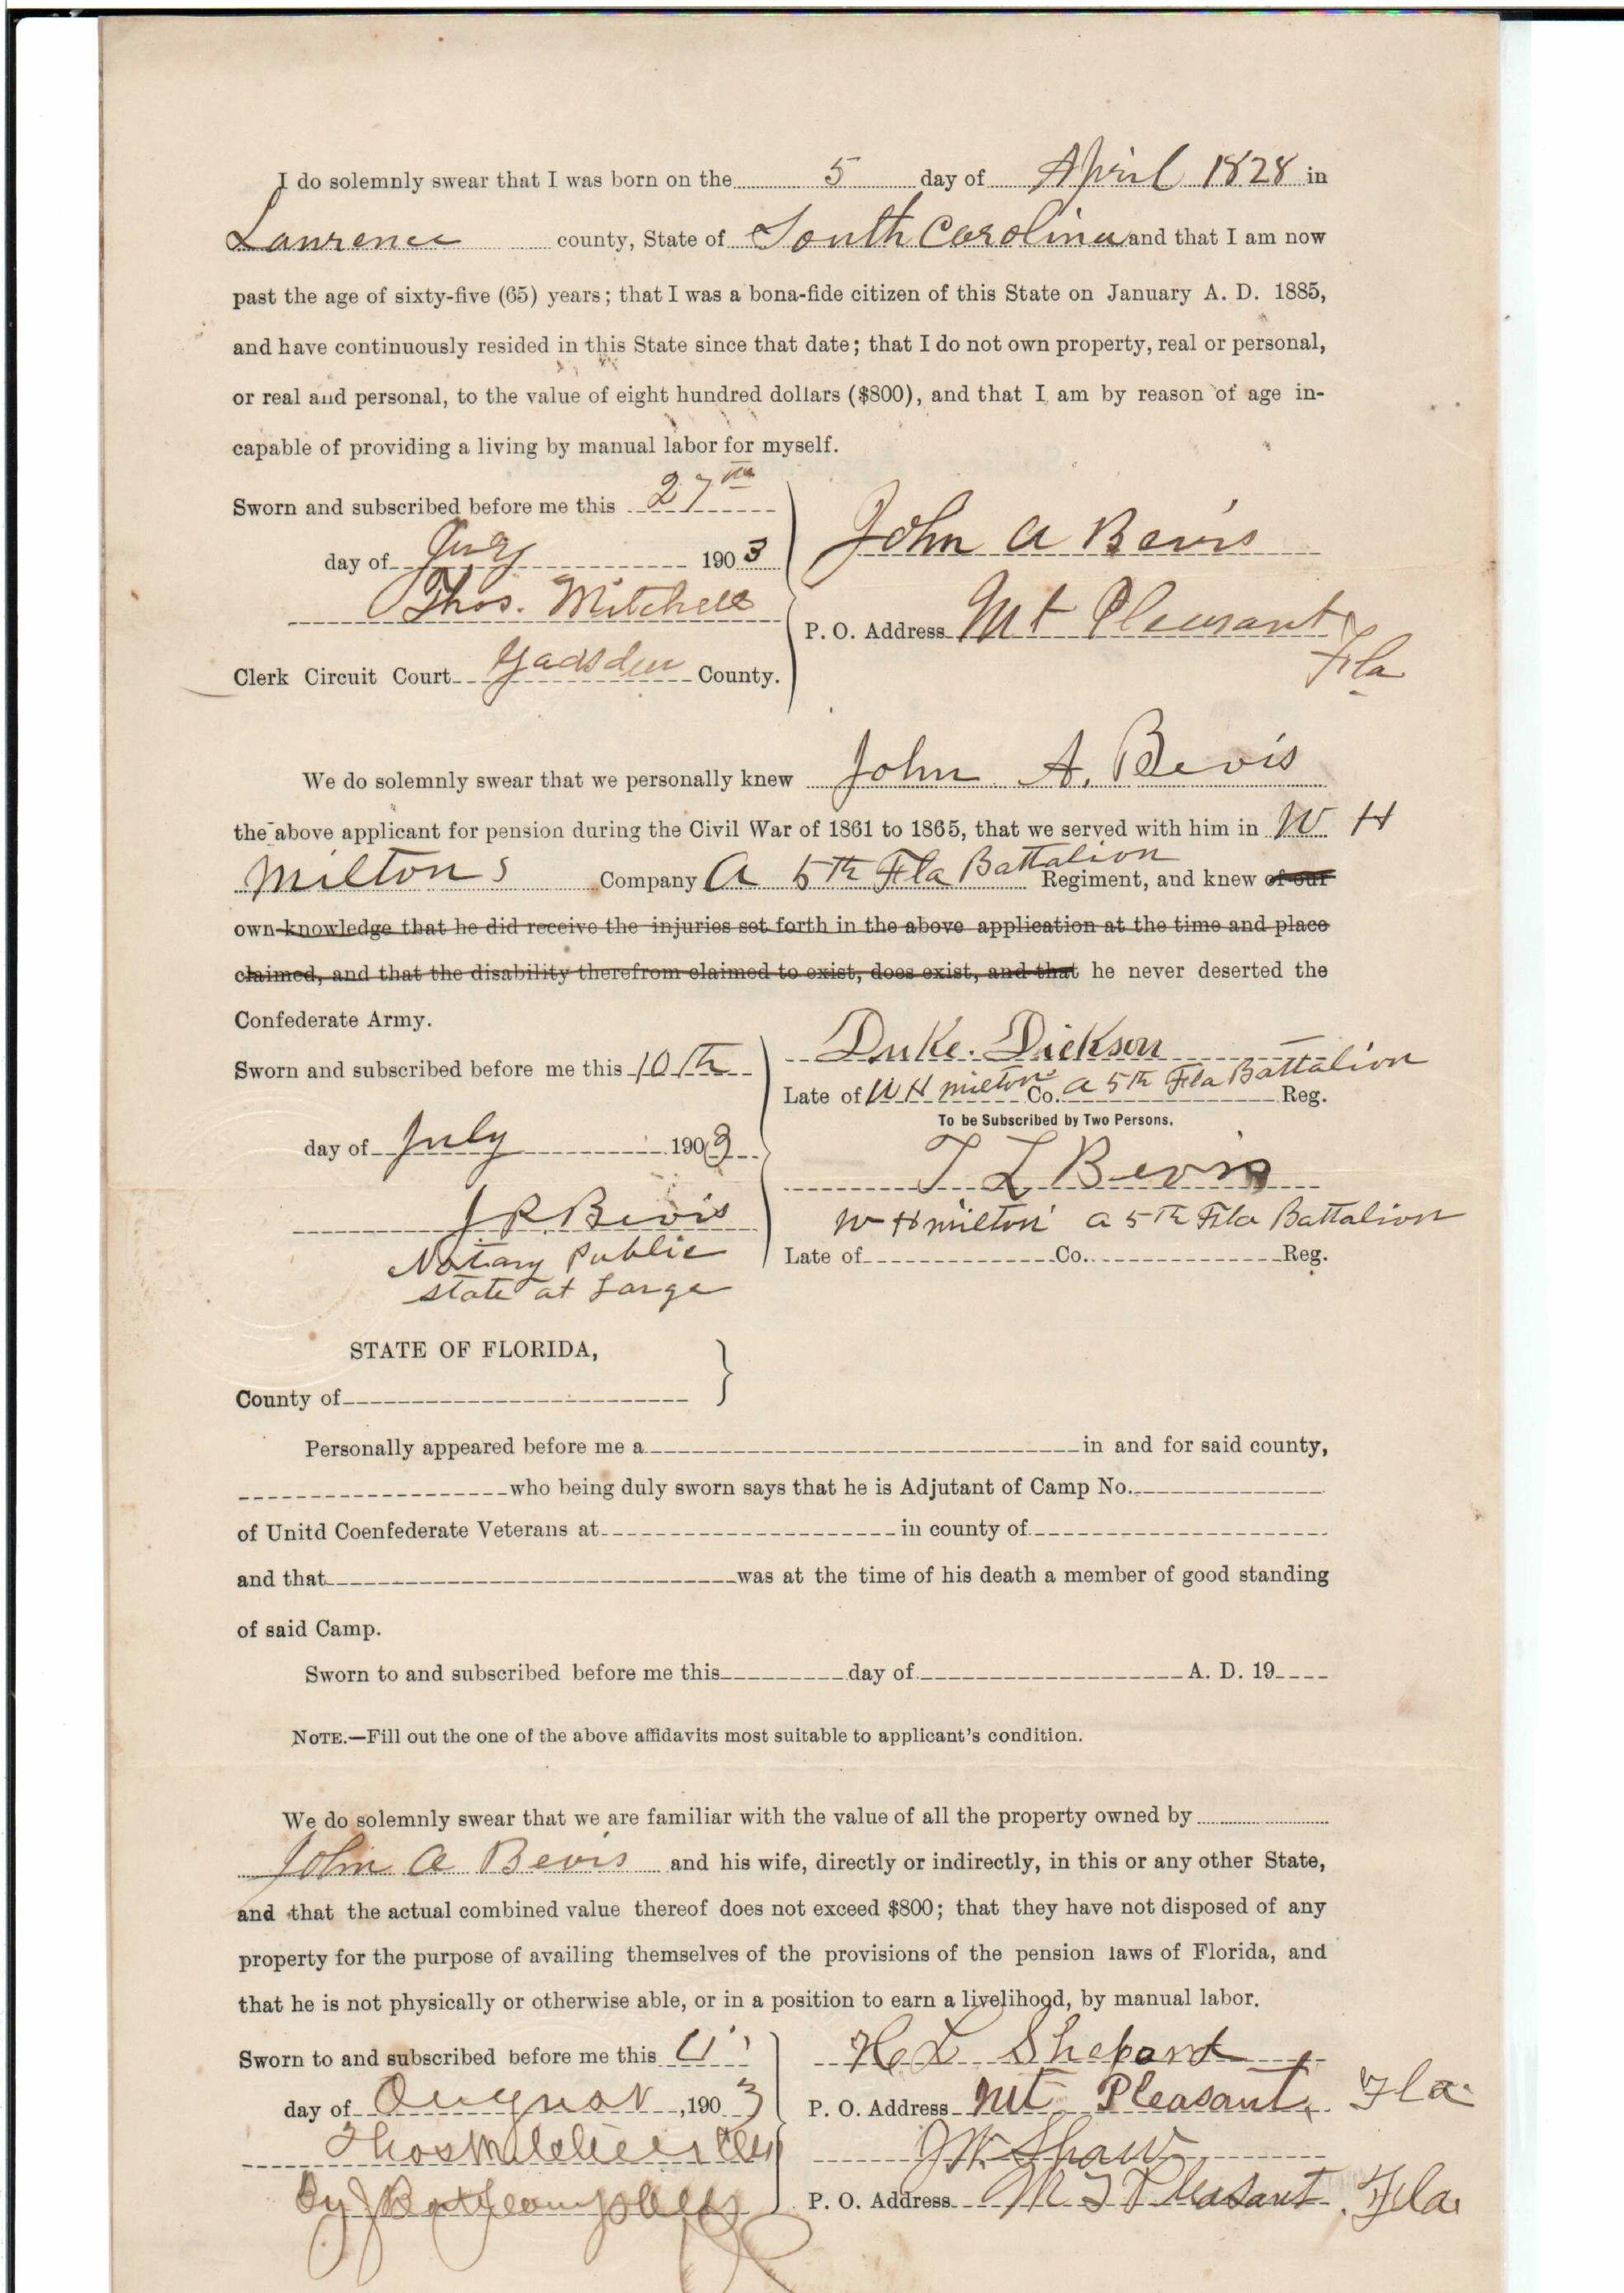 I do solemnly swear that I was born on the 5 day of April 1828 in
Lawrence county, State of South Carolina and that I am now
past the age of sixty-five (65) years; that I was a bona-fide citizen of this State on January A. D. 1885,
and have continuously resided in this State since that date; that I do not own property, real or personal,
or real and personal, to the value of eight hundred dollars ($800), and that I am by reason of age in-
capable of providing a living by manual labor for myself.
Sworn and subscribed before me this 27th
day of 1903
Thos. Mitchell
Clerk Circuit Court Gadsden County.
John A Bevis
P. O. Address Mt Pleasant
Fla
We do solemnly swear that we personally knew John A. Bevis
the above applicant for pension during the Civil War of 1861 to 1865, that we served with him in W H
Miltons Company A 5th Fla Battalion Regiment, and knew of our
own knowledge that he did receive the injuries set forth in the above application at the time and place
claimed, and that the disability therefrom claimed to exist, does exist, and that he never deserted the
Confederate Army.
Sworn and subscribed before me this 10th
day of July 1903
J. R. Bevis
Notary Public
State at Large
Duke. Dickson
Late of W H Miltons Co. A 5th Fla Battalion Reg.
To be Subscribed by Two Persons.
T L Bevis
W H Milton A 5th Fla Battalion
Late of Co. Reg.
STATE OF FLORIDA,
County of
Personally appeared before me a in and for said county,
who being duly sworn says that he is Adjutant of Camp No.
of Unitd Coenfederate Veterans at in county of
and that was at the time of his death a member of good standing
of said Camp.
Sworn to and subscribed before me this day of A. D. 19
NOTE.—Fill out the one of the above affidavits most suitable to applicant's condition.
We do solemnly swear that we are familiar with the value of all the property owned by
John A Bevis and his wife, directly or indirectly, in this or any other State,
and that the actual combined value thereof does not exceed $800; that they have not disposed of any
property for the purpose of availing themselves of the provisions of the pension laws of Florida, and
that he is not physically or otherwise able, or in a position to earn a livelihood, by manual labor.
Sworn to and subscribed before me this
day of August, 1903
Thos Mitchell Clk
By
H L Shepard
P. O. Address Mt Pleasant, Fla
J W Shaw
P. O. Address Mt Pleasant, Fla.